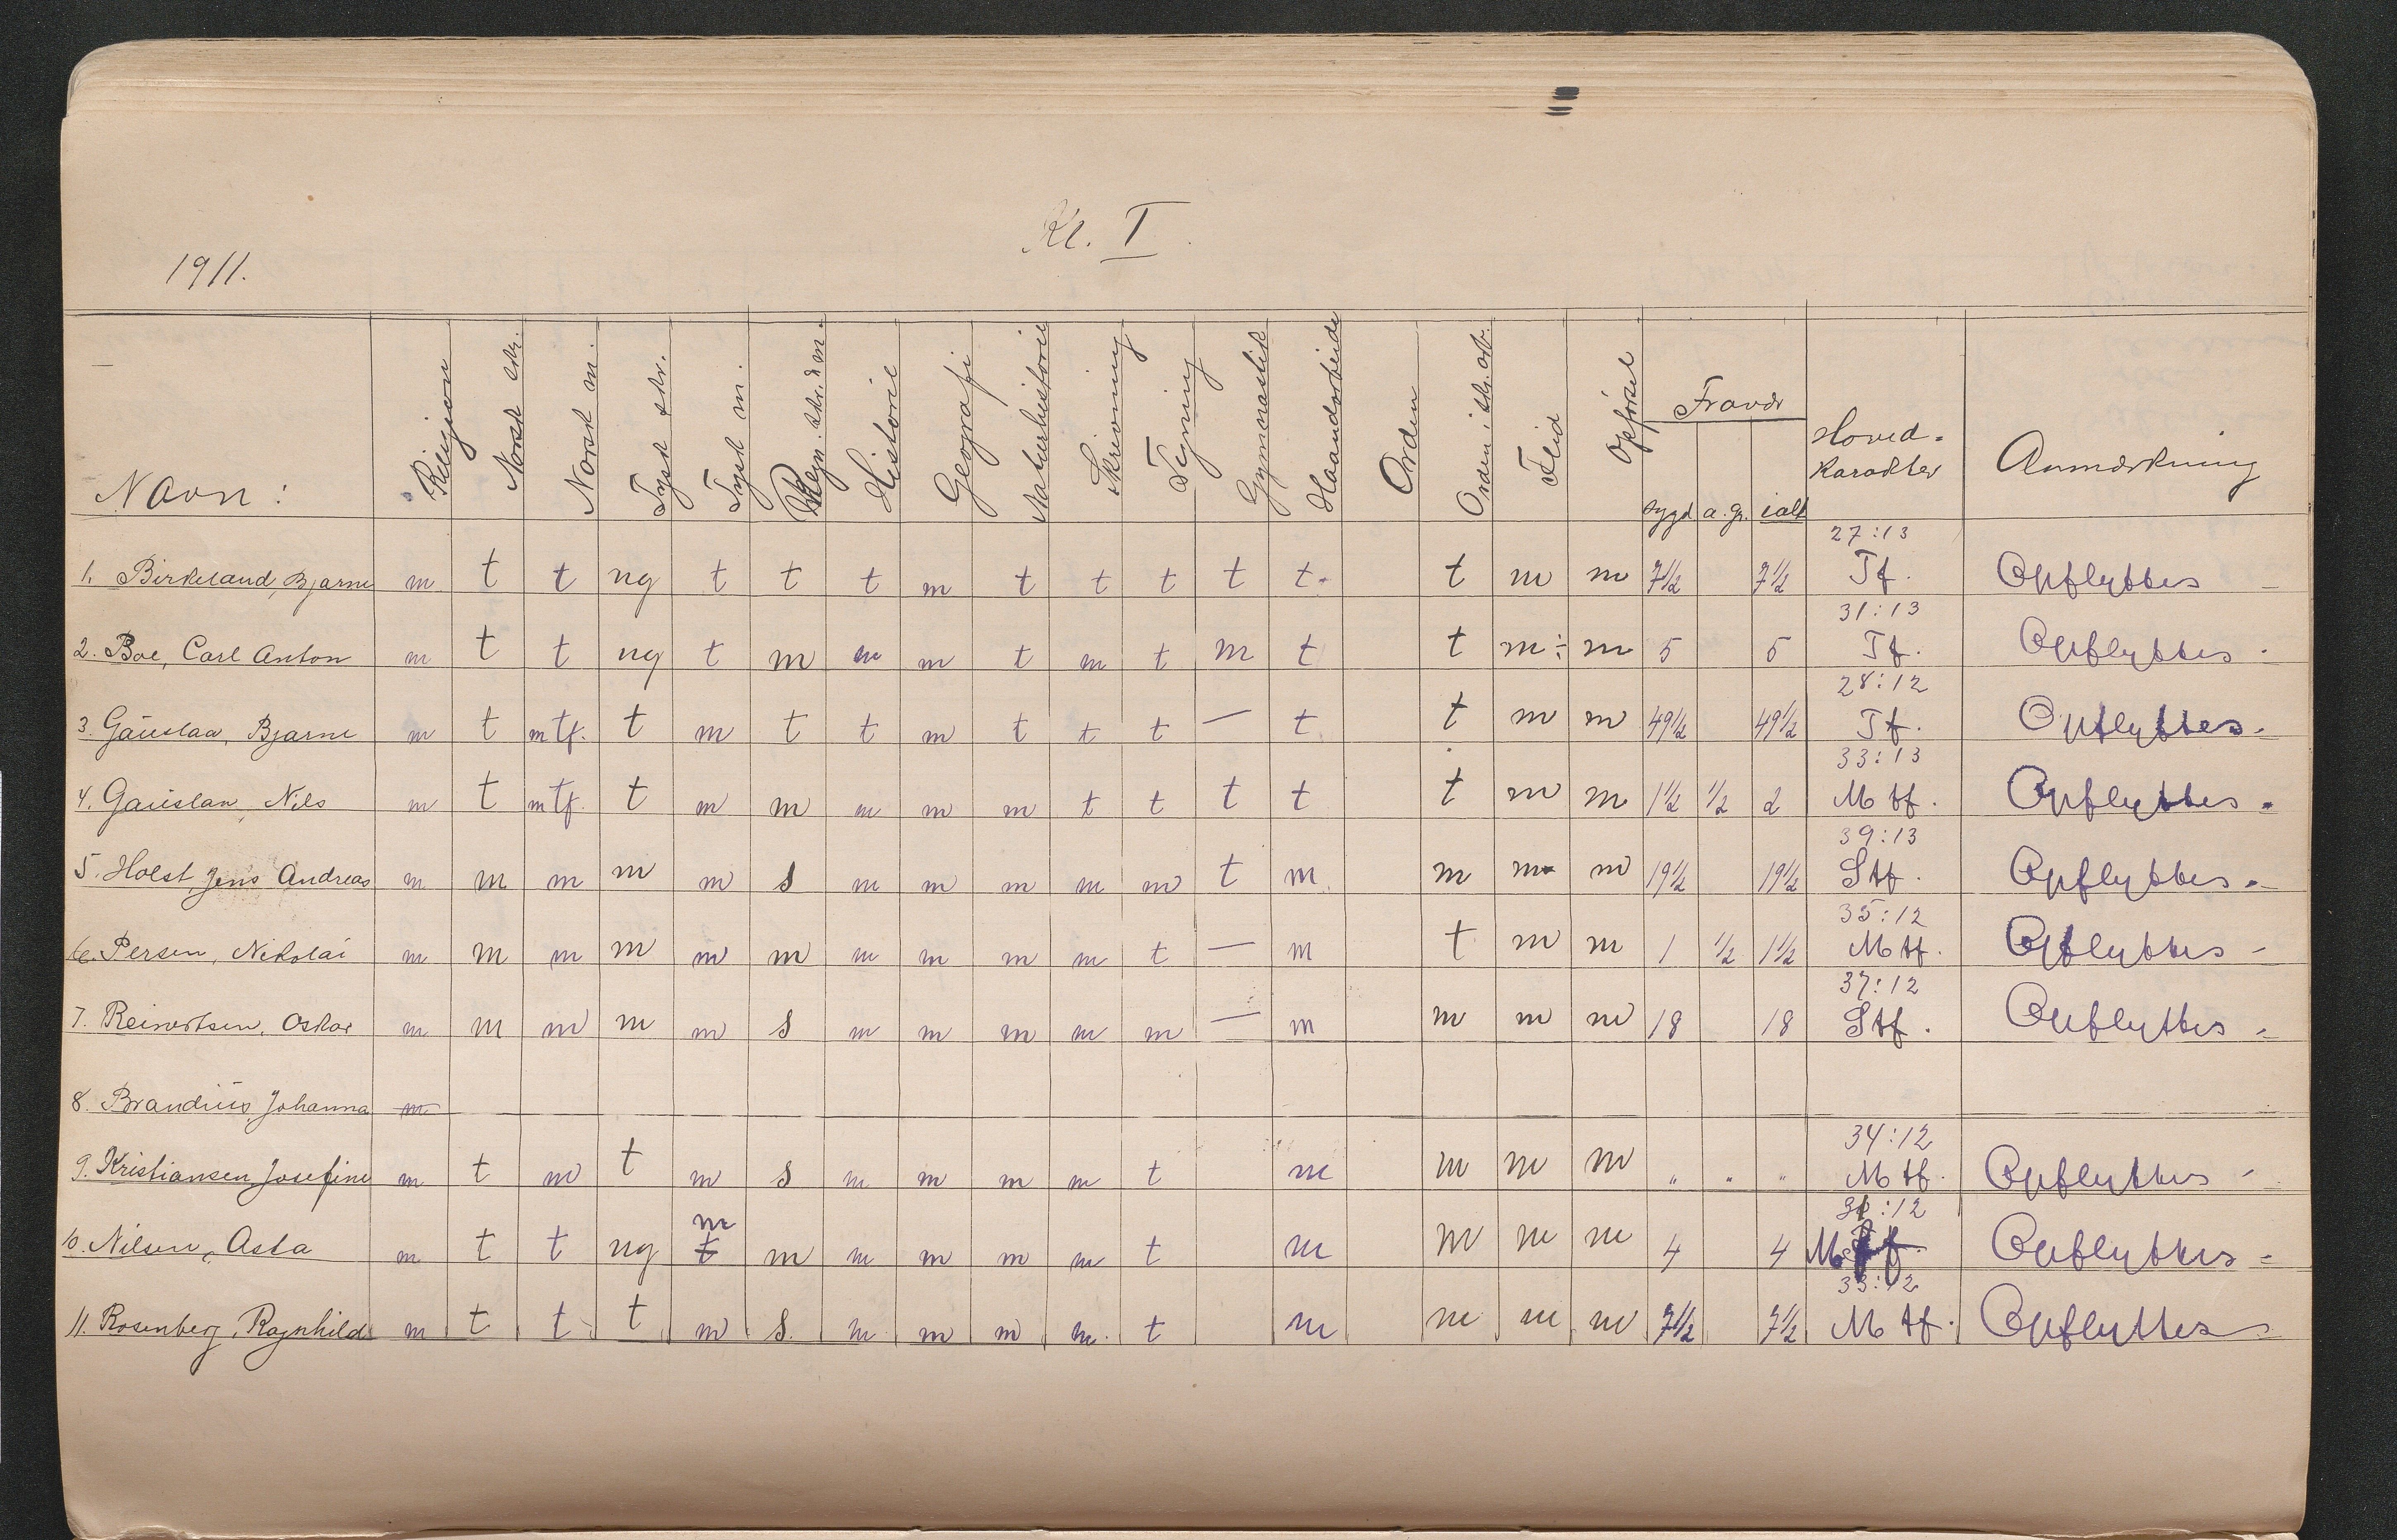 Kl. I.
1911.
Navn: Religion Norsk skr. Norsk m. Tysk skr. Tysk m. Regn. skr. & m. Historie Geografi Naturhistorie Skrivning Tegning Gymnastik Haandarbeide Orden Orden i skr. arb. Flid Opførsel Fravær sygd a. gr. ialt Hoved-karakter Anmærkning
27:13
1. Birkeland, Bjarne m t t ng t t t m t t t t t t m m 7½ 7½ Tf. Opflyttes
31:13
2. Boe, Carl Anton m t t ng t m m m t m t m t t m÷ m 5 5 Tf. Opflyttes
28:12
3. Gauslaa, Bjarne m t mtf. t m t t m t t t — t t m m 49½ 49½ Tf. Opflyttes
33:13
4. Gauslaa, Nils m t mtf. t m m m m m t t t t t m m 1½ ½ 2 Mtf. Opflyttes
39:13
5. Holst, Jens Andreas m m m m m s m m m m m t m m m m 19½ 19½ Stf. Opflyttes
35:12
6. Persen, Nikolai m m m m m m m m m m t — m t m m 1 ½ 1½ Mtf. Opflyttes
37:12
7. Reinertsen, Oskar m m m m m s m m m m m — m m m m 18 18 Stf. Opflyttes
8. Brandius, Johanna m
34:12
9. Kristiansen, Josefine m t m t m s m m m m t m m m m " " " Mtf. Opflyttes
:12
m
10. Nilsen, Asta m t t ng t m m m m m t m m m m 4 4 Opflyttes
33:12
11. Rosenberg, Ragnhild m t t t m s m m m m t m m m m 7½ 7½ Mtf. Opflyttes